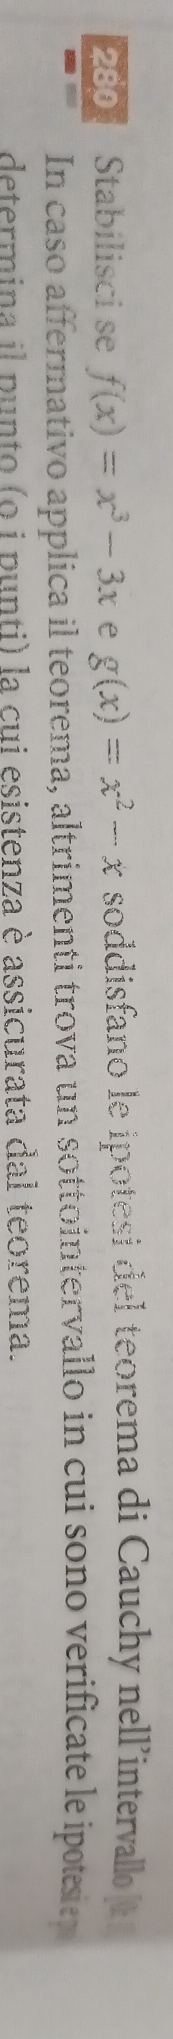 280 Stabilisci se f(x) = x³ – 3x e g(x) = x² – x soddisfano le ipotesi del teorema di Cauchy nell'intervallo
In caso affermativo applica il teorema, altrimenti trova un sottointervallo in cui sono verificate le ipotesi e
determina il punto (o i punti) la cui esistenza è assicurata dal teorema.